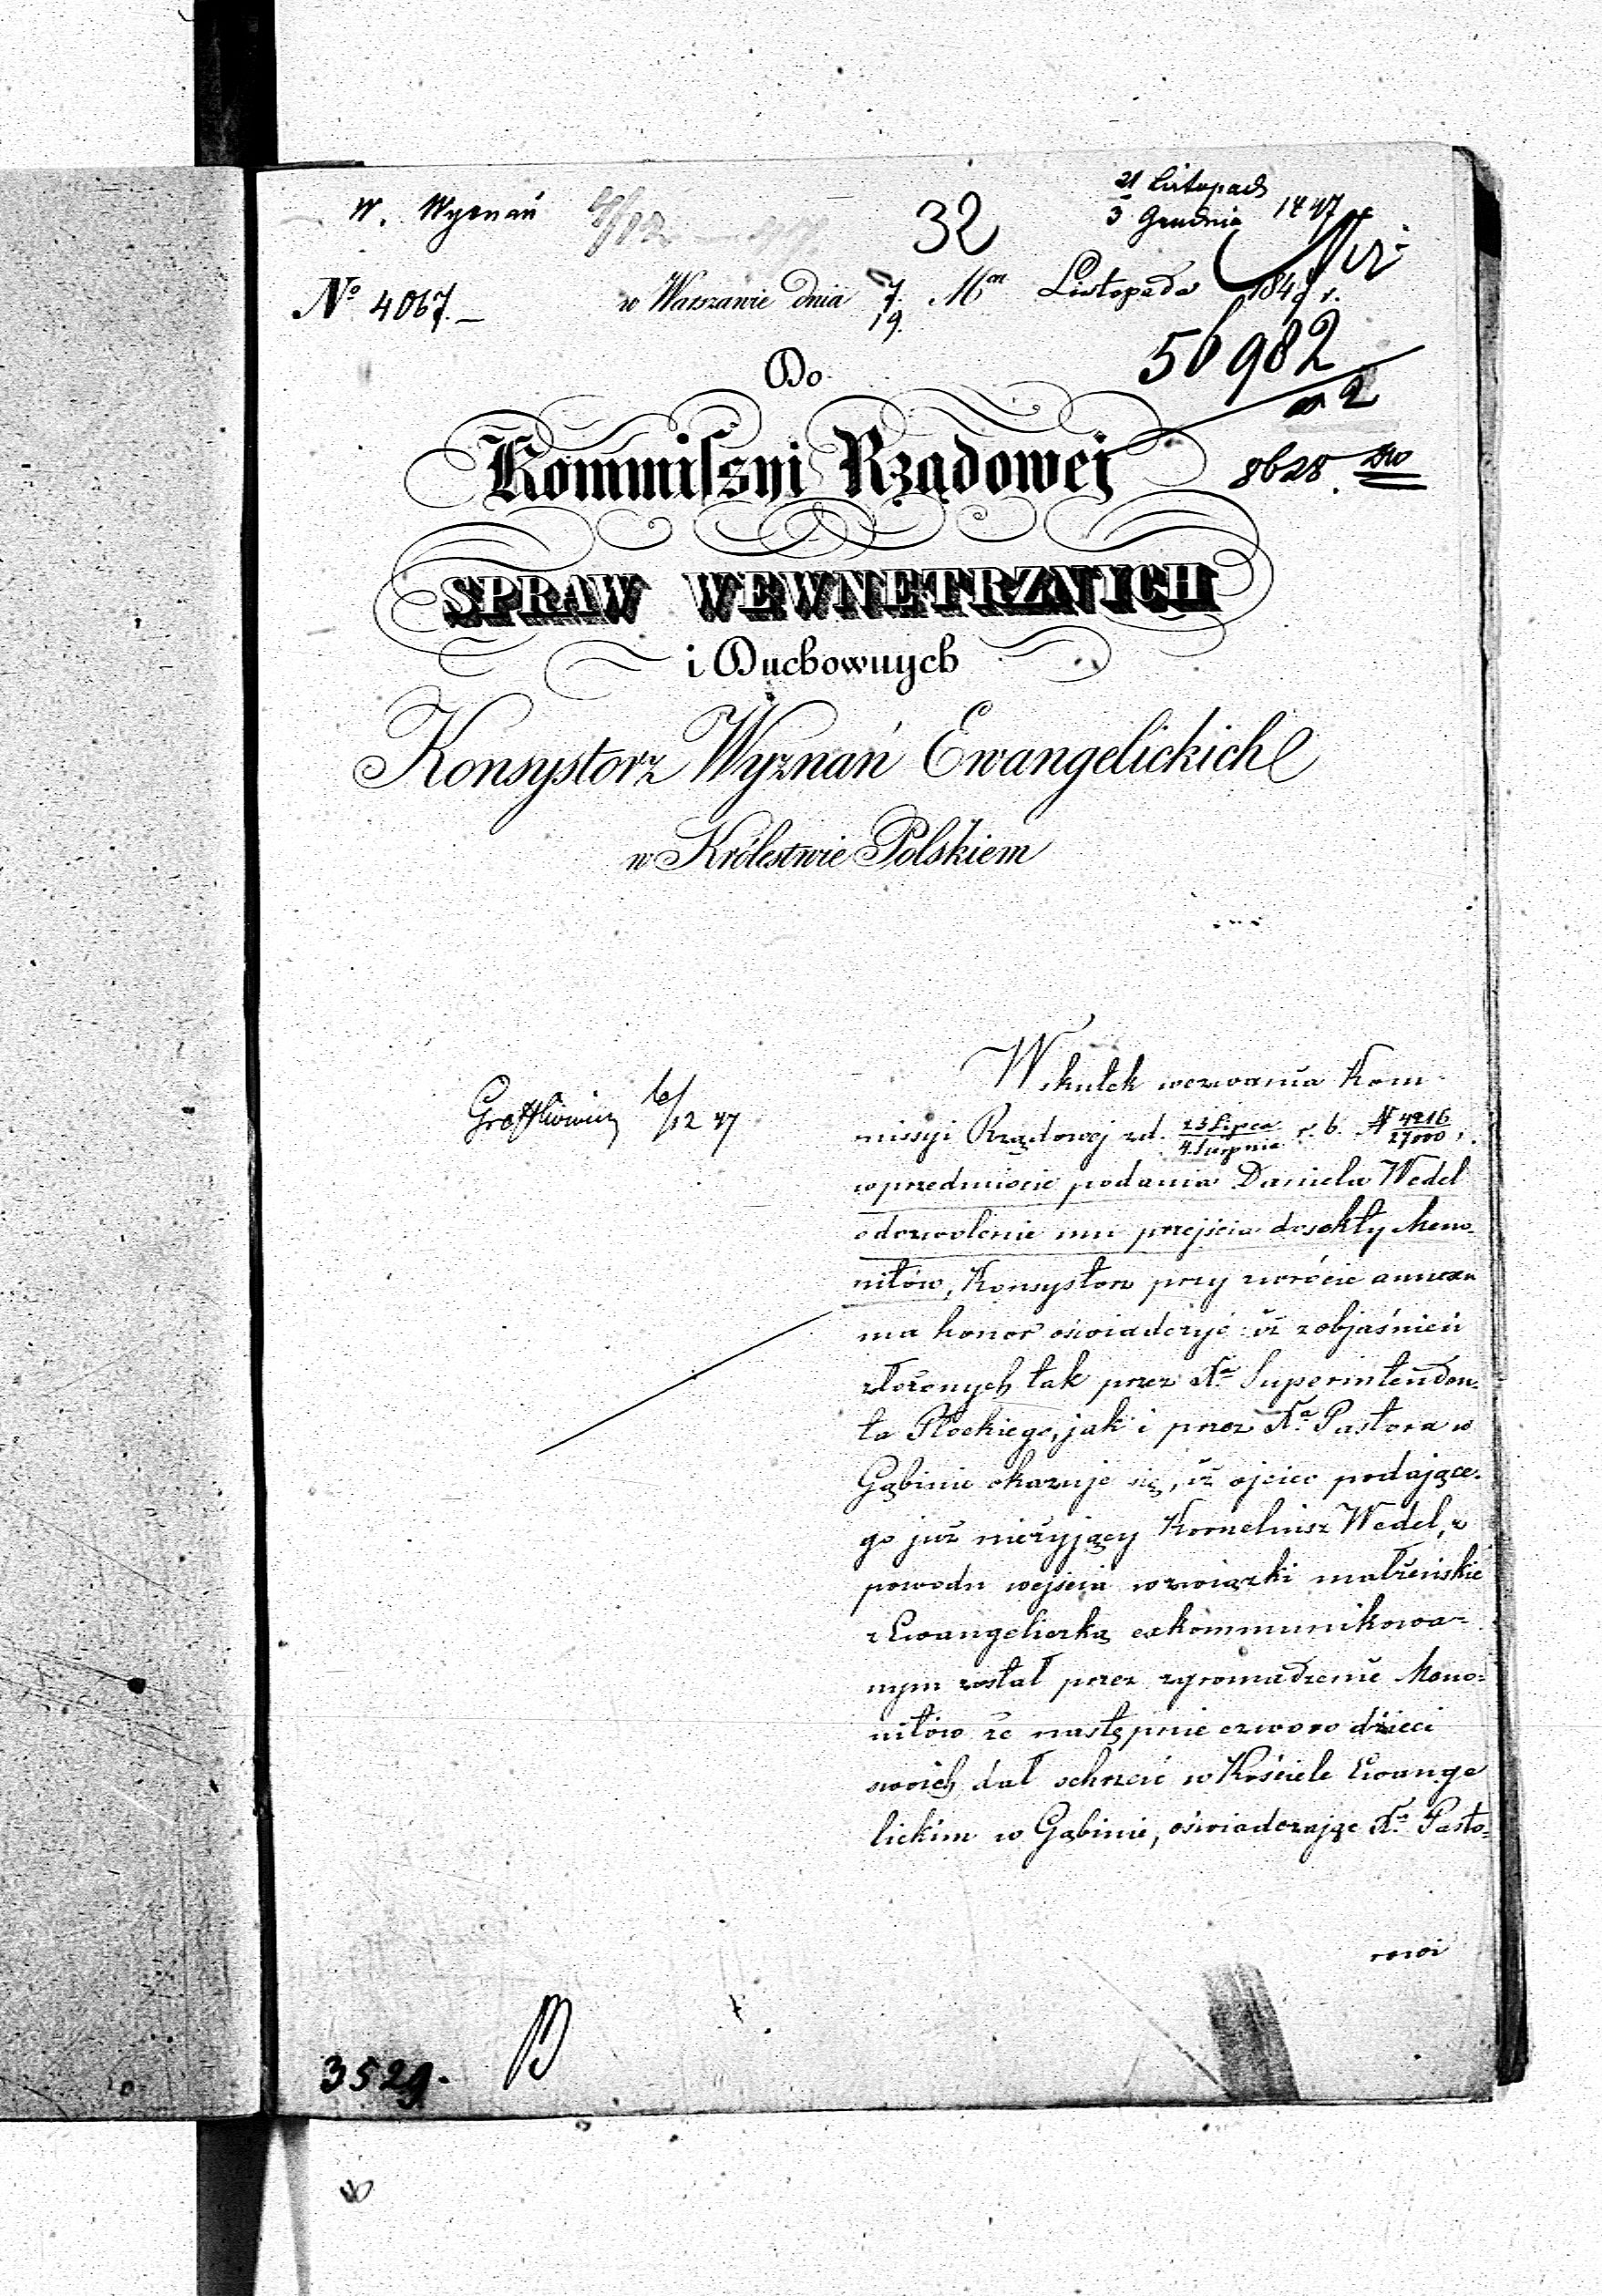 W. Wyznań
32
21 Listopad
3 Grudnia 1847
No 4067.
w Warszawie dnia 7. Mca Listopada 1847 r.
19.
56982
Do
a 2
Kommissyi Rządowej
8628.
SPRAW WEWNETRZNYCH
i Duchownych
Konsystorz Wyznań Ewangelickich
w Królestwie Polskiem
Wskutek wezwania Kom
6/12 47
missyi Rządowej zd. 23 Lipca / 4 Sierpnia r. b. N 4216 / 27000,
w przedmiocie podania Daniela Wedel
o dozwolenie mu przejścia do sekty Meno-
nitów, Konsystorz przy zwrócie annexu
ma honor oświadczyć iż z objaśnień
złożonych tak przez Xa Superintenden-
ta Płockiego, jak i przez Xa Pastora w
Gąbinie okazuje się, iż ojciec podające-
go już nieżyjący Korneliusz Wedel, z
powodu wejścia w związki małżeńskie
z Ewangeliczką exkommunikowa-
nym został przez zgromadzenie Meno-
nitów że następnie czworo dzieci
swoich dał ochrzcić w Kościele Ewange
lickim w Gąbinie, oświadczając Xa Pasto-
rowi
3529.